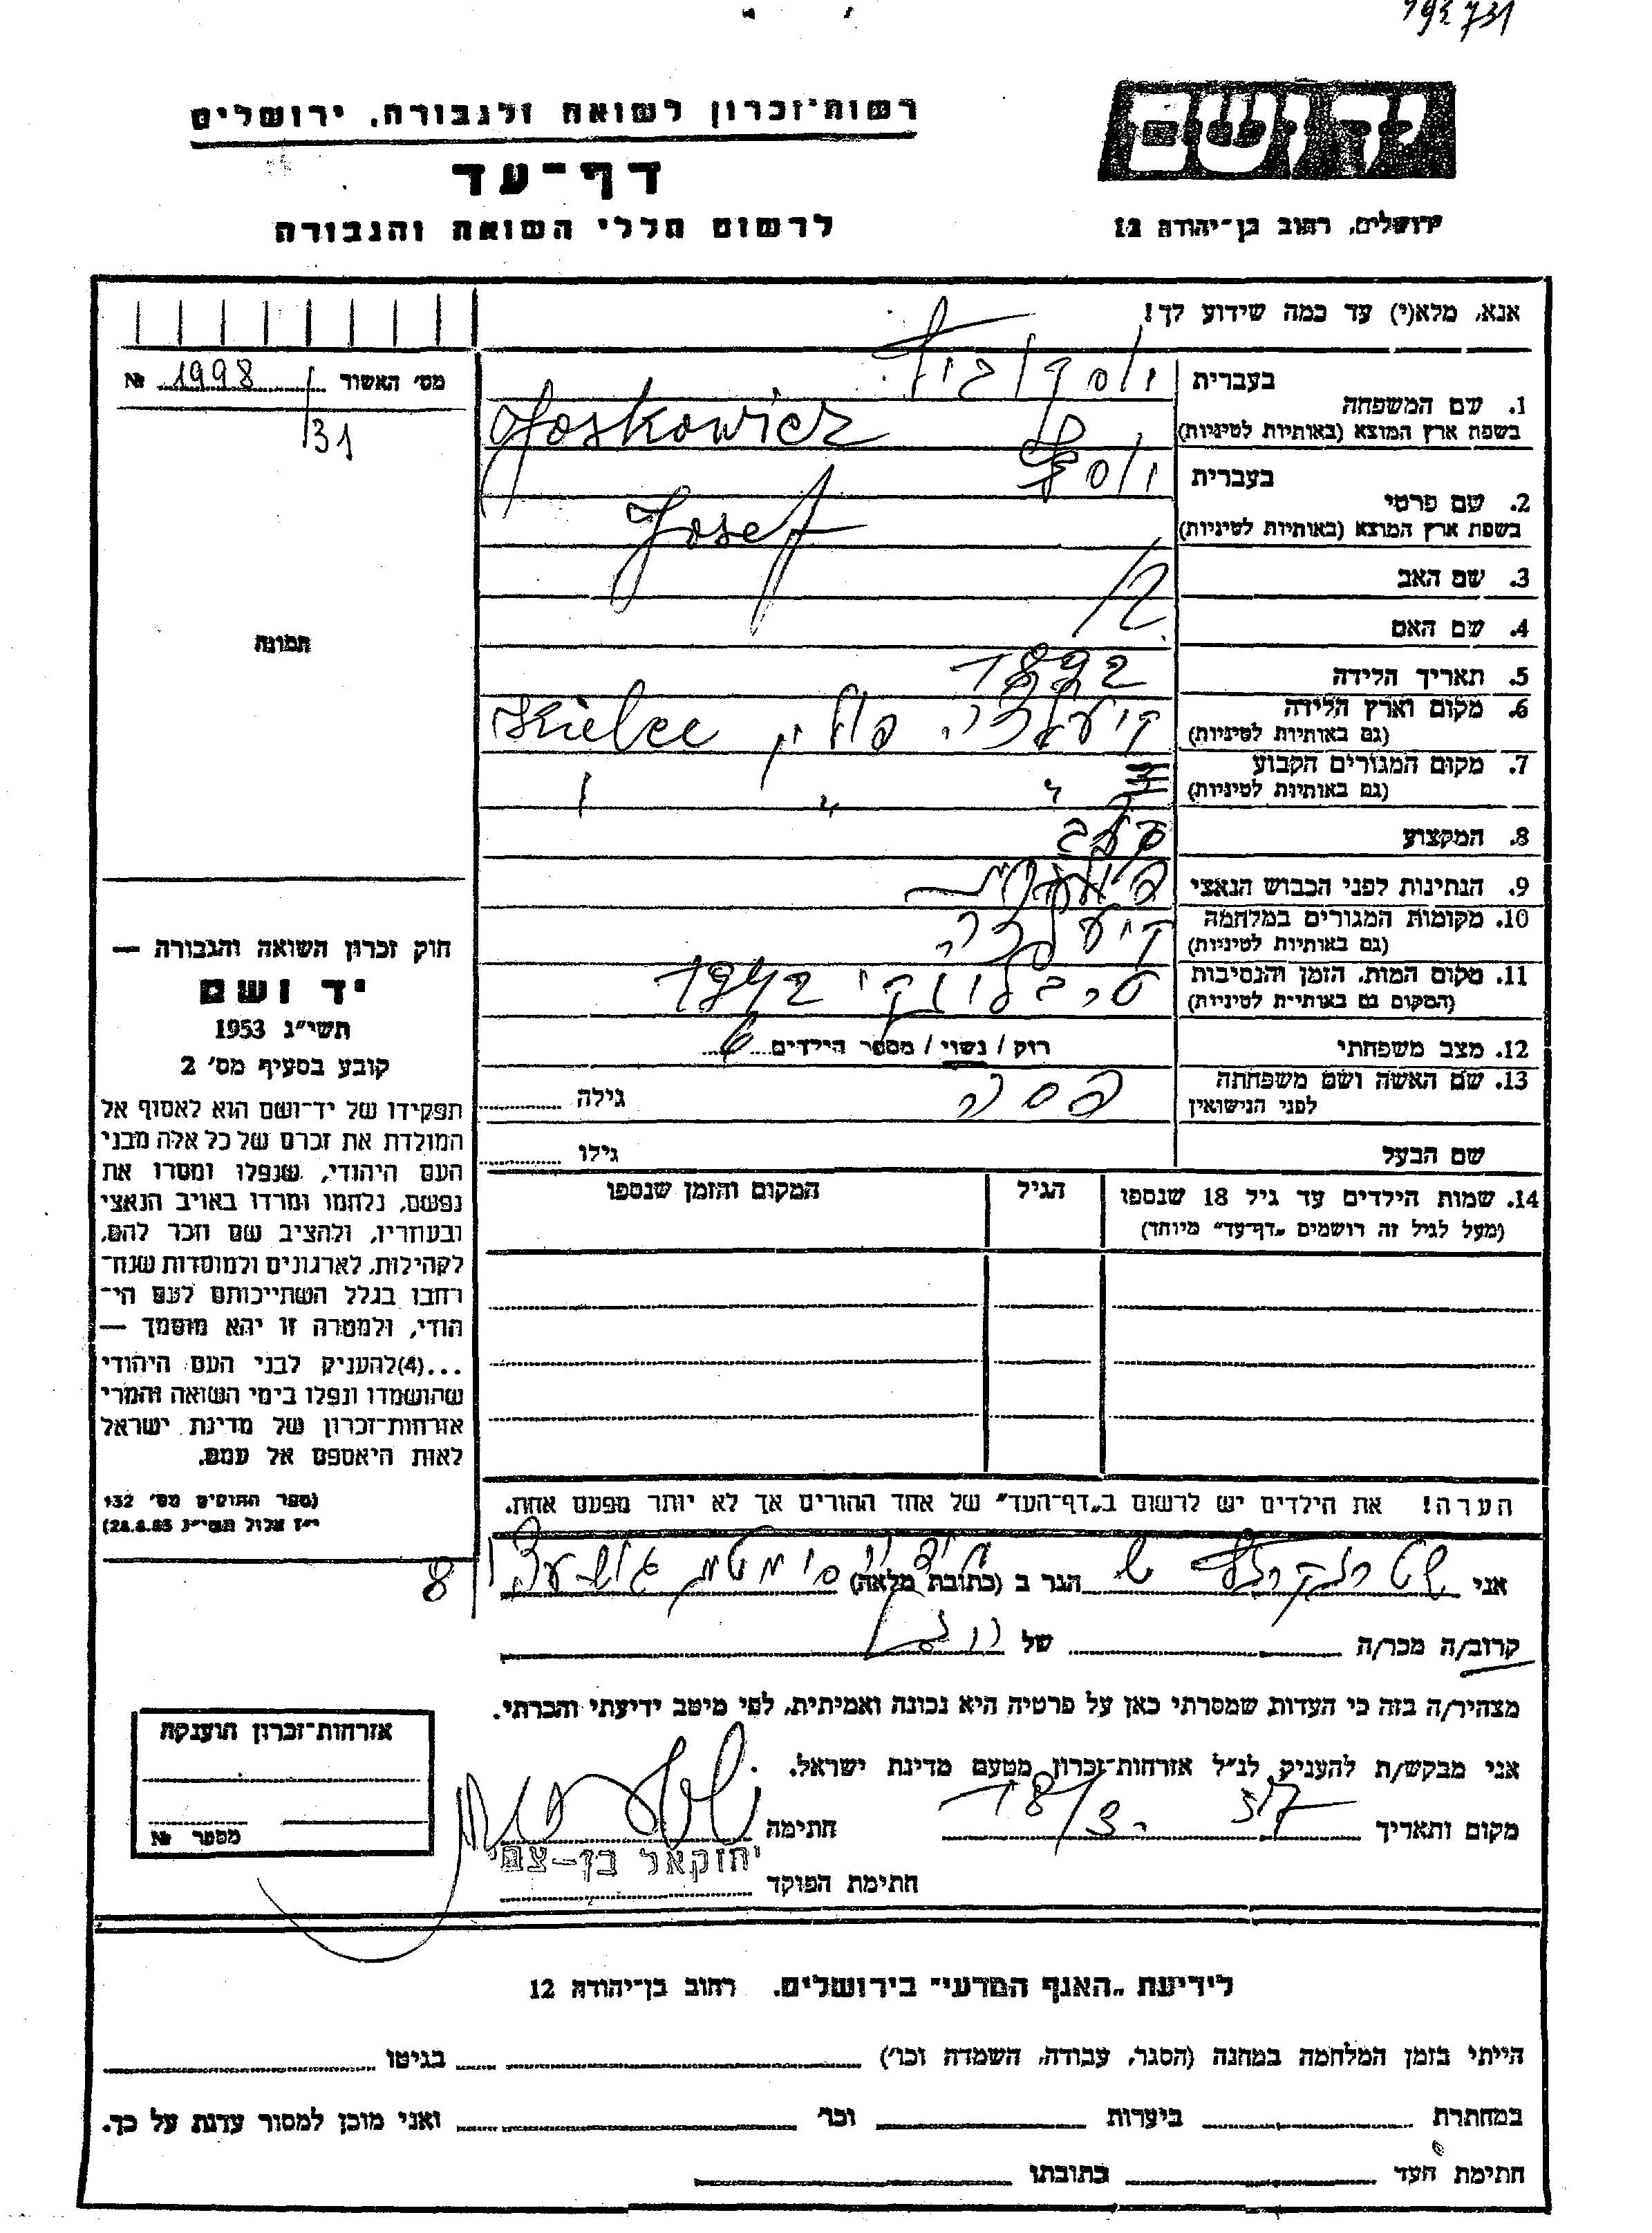 רשות־זכרון לשואה ולגבורה, ירושלים
דף־עד
לרשום חללי השואה והגבורה
יד ושם
ירושלים, רחוב בן־יהודה 12
אנא, מלא(י) עד כמה שידוע לך!
מס׳ האשור 1998 №
31
בעברית
1. שם המשפחה
בשפת ארץ המוצא (באותיות לטיניות) Joskowicz
בעברית יוסף
2. שם פרטי
בשפת ארץ המוצא (באותיות לטיניות) Josef
3. שם האב
4. שם האם
תמונה
5. תאריך הלידה 1892
6. מקום וארץ הלידה
(גם באותיות לטיניות) קיעלצה פולין, Kielce
7. מקום המגורים הקבוע
(גם באותיות לטיניות) " " "
8. המקצוע
9. הנתינות לפני הכבוש הנאצי
10. מקומות המגורים במלחמה
(גם באותיות לטיניות) קיעלצה
11. מקום המות, הזמן והנסיבות
(המקום גם באותיות לטיניות) טרבלינקי 1942
12. מצב משפחתי רוק / נשוי / מספר הילדים 6
13. שם האשה ושם משפחתה
לפני הנישואין פסה גילה
שם הבעל גילו
14. שמות הילדים עד גיל 18 שנספו
(מעל לגיל זה רושמים „דף־עד" מיוחד)
הגיל
המקום והזמן שנספו
חוק זכרון השואה והגבורה —
יד ושם
תשי״ג 1953
קובע בסעיף מס׳ 2
תפקידו של יד־ושם הוא לאסוף אל
המולדת את זכרם של כל אלה מבני
העם היהודי, שנפלו ומסרו את
נפשם, נלחמו ומרדו באויב הנאצי
ובעוזריו, ולהציב שם וזכר להם,
לקהילות, לארגונים ולמוסדות שנח־
רחבו בגלל השתייכותם לעם הי־
הודי, ולמטרה זו יהא מוסמך —
...(4)להעניק לבני העם היהודי
שהושמדו ונפלו בימי השואה והמרי
אזרחות־זכרון של מדינת ישראל
לאות היאספם אל עמם.
(ספר החוקים מס׳ 132
י״ז אלול תשי״ג 28.8.53)
הערה! את הילדים יש לרשום ב„דף־העד" של אחד ההורים אך לא יותר מפעם אחת.
אני הגר ב (כתובת מלאה) 8
קרוב/ה מכר/ה של
מצהיר/ה בזה כי העדות שמסרתי כאן על פרטיה היא נכונה ואמיתית, לפי מיטב ידיעתי והכרתי.
אני מבקש/ת להעניק לנ״ל אזרחות־זכרון מטעם מדינת ישראל.
מקום ותאריך 18/3. חתימה
יחזקאל בן-צם
חתימת הפוקד
אזרחות־זכרון הוענקה
מספר №
לידיעת „האגף המדעי" בירושלים. רחוב בן־יהודה 12
הייתי בזמן המלחמה במחנה (הסגר, עבודה, השמדה וכו׳) בגיטו
במחתרת ביערות וכו׳ ואני מוכן למסור עדות על כך.
חתימת העד כתובתו